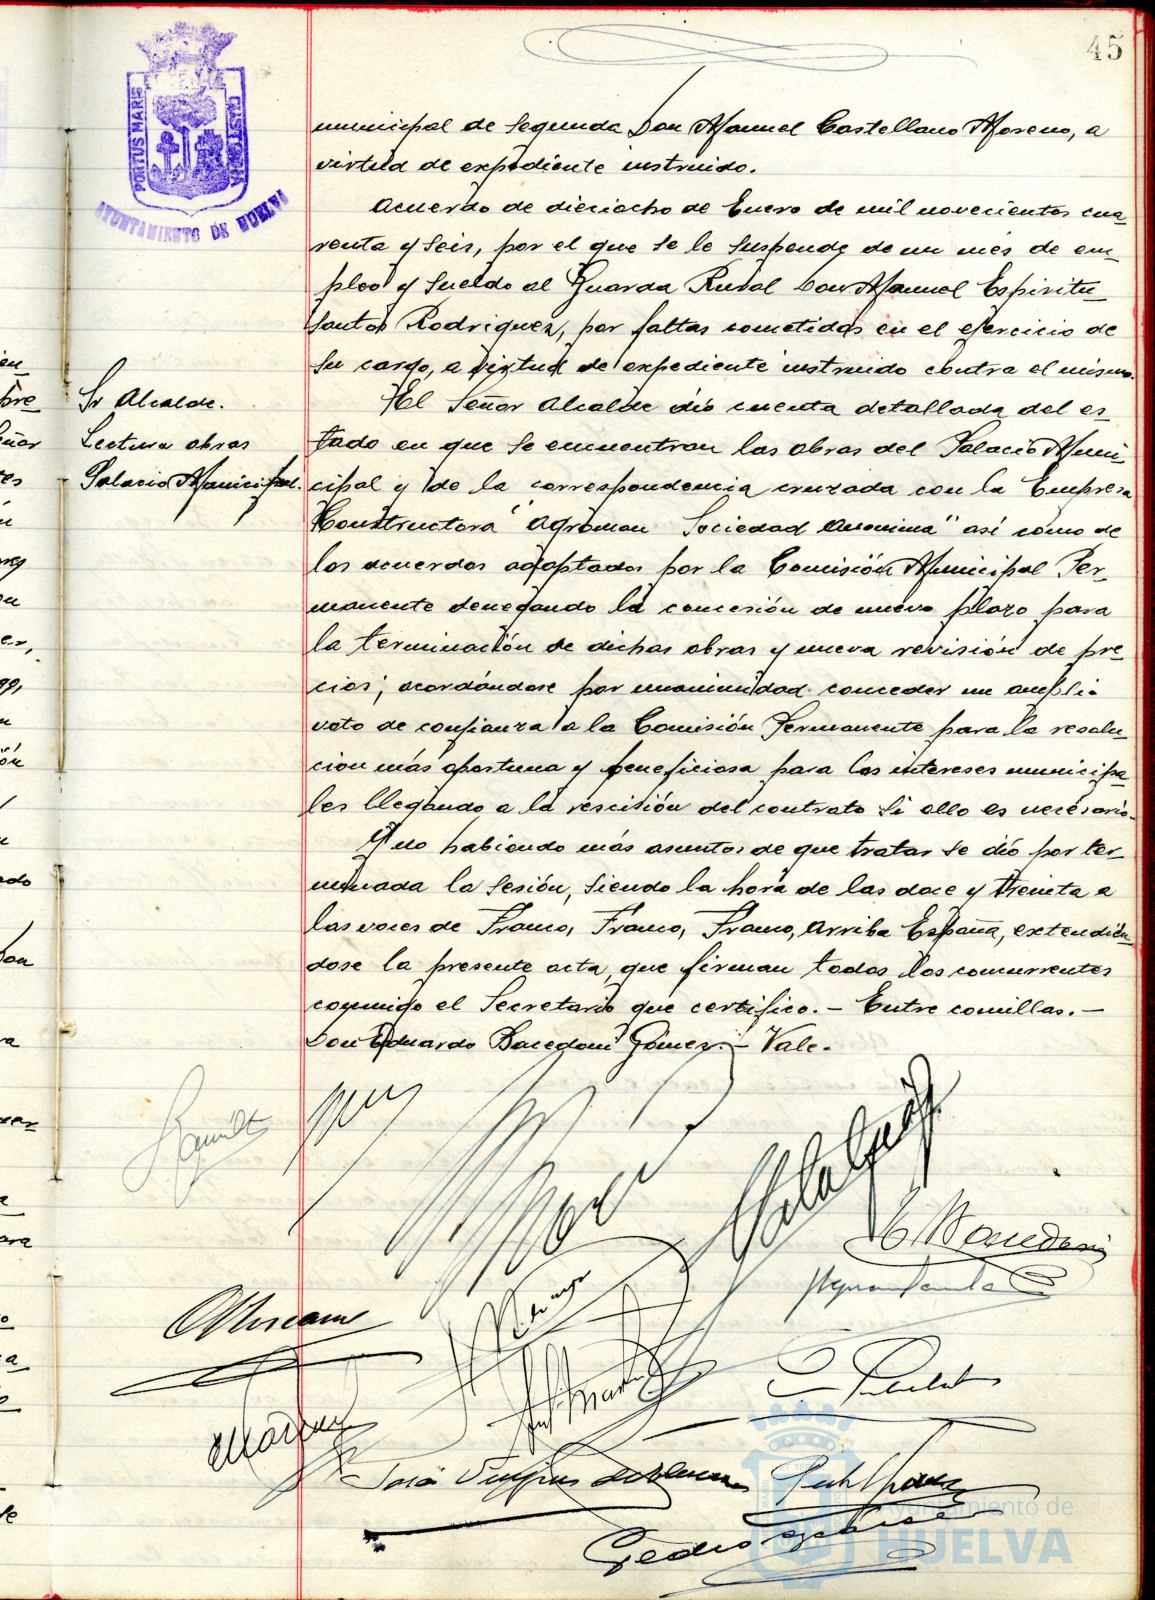 45
PORTUS MARIS
ET TERRAE CUSTODIA
AYUNTAMIENTO DE HUELVA
municipal de segunda Don Manuel Castellano Moreno, a
virtud de expediente instruido.
Acuerdo de dieciocho de Enero de mil novecientos cua
renta y seis, por el que se le suspende de un mes de em-
pleo y sueldo al Guarda Rural Don Manuel Espiritu
Santo Rodriguez, por faltas cometidas en el ejercicio de
su cargo, a virtud de expediente instruido contra el mismo.
Sr Alcalde.
Lectura obras
Palacio Municipal.
El Señor Alcalde dió cuenta detallada del es-
tado en que se encuentran las obras del Palacio Muni-
cipal y de la correspondencia cruzada con la Empresa
Constructora "Agroman Sociedad Anonima" así como de
los acuerdos adoptados por la Comisión Municipal Per-
manente denegando la concesión de nuevo plazo para
la terminación de dichas obras y nueva revisión de pre-
cios; acordándose por unanimidad conceder un amplio
voto de confianza a la Comisión Permanente para la resolu-
cion más oportuna y beneficiosa para los intereses municipa
les llegando a la rescisión del contrato si ello es necesario.
Y no habiendo más asuntos de que tratar se dió por ter-
minada la sesión, siendo la hora de las doce y treinta a
las voces de Franco, Franco, Franco, Arriba España, extendién-
dose la presente acta, que firman todos los concurrentes
conmigo el Secretario que certifico.- Entre comillas.-
Don Eduardo Bacedoni Gómez.- Vale.
Ayuntamiento de
HUELVA